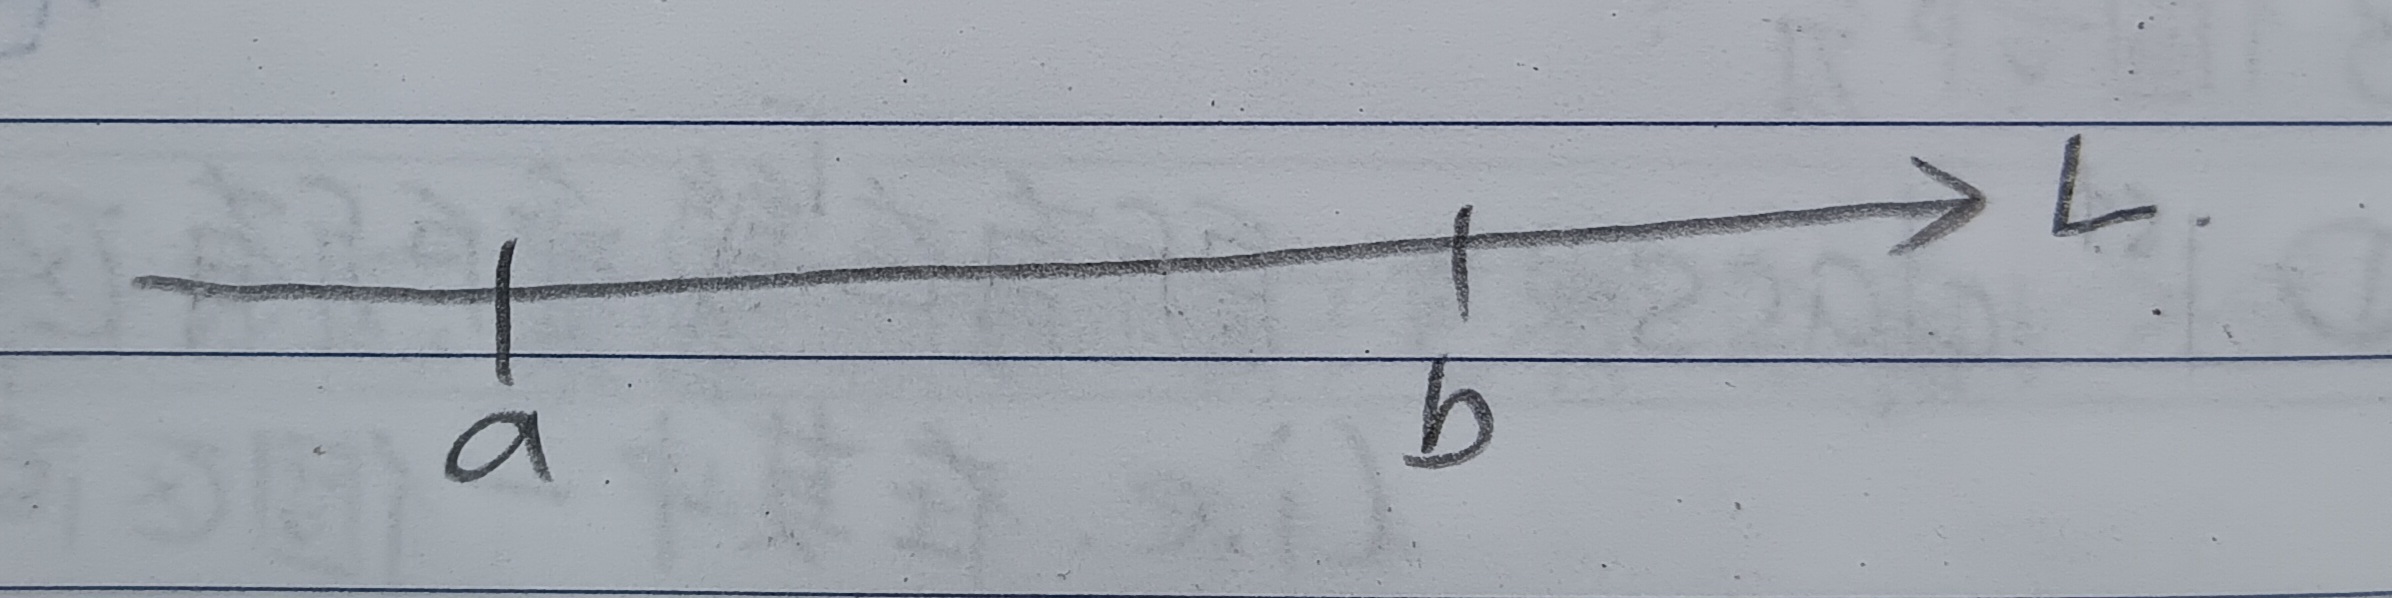 L.
a b